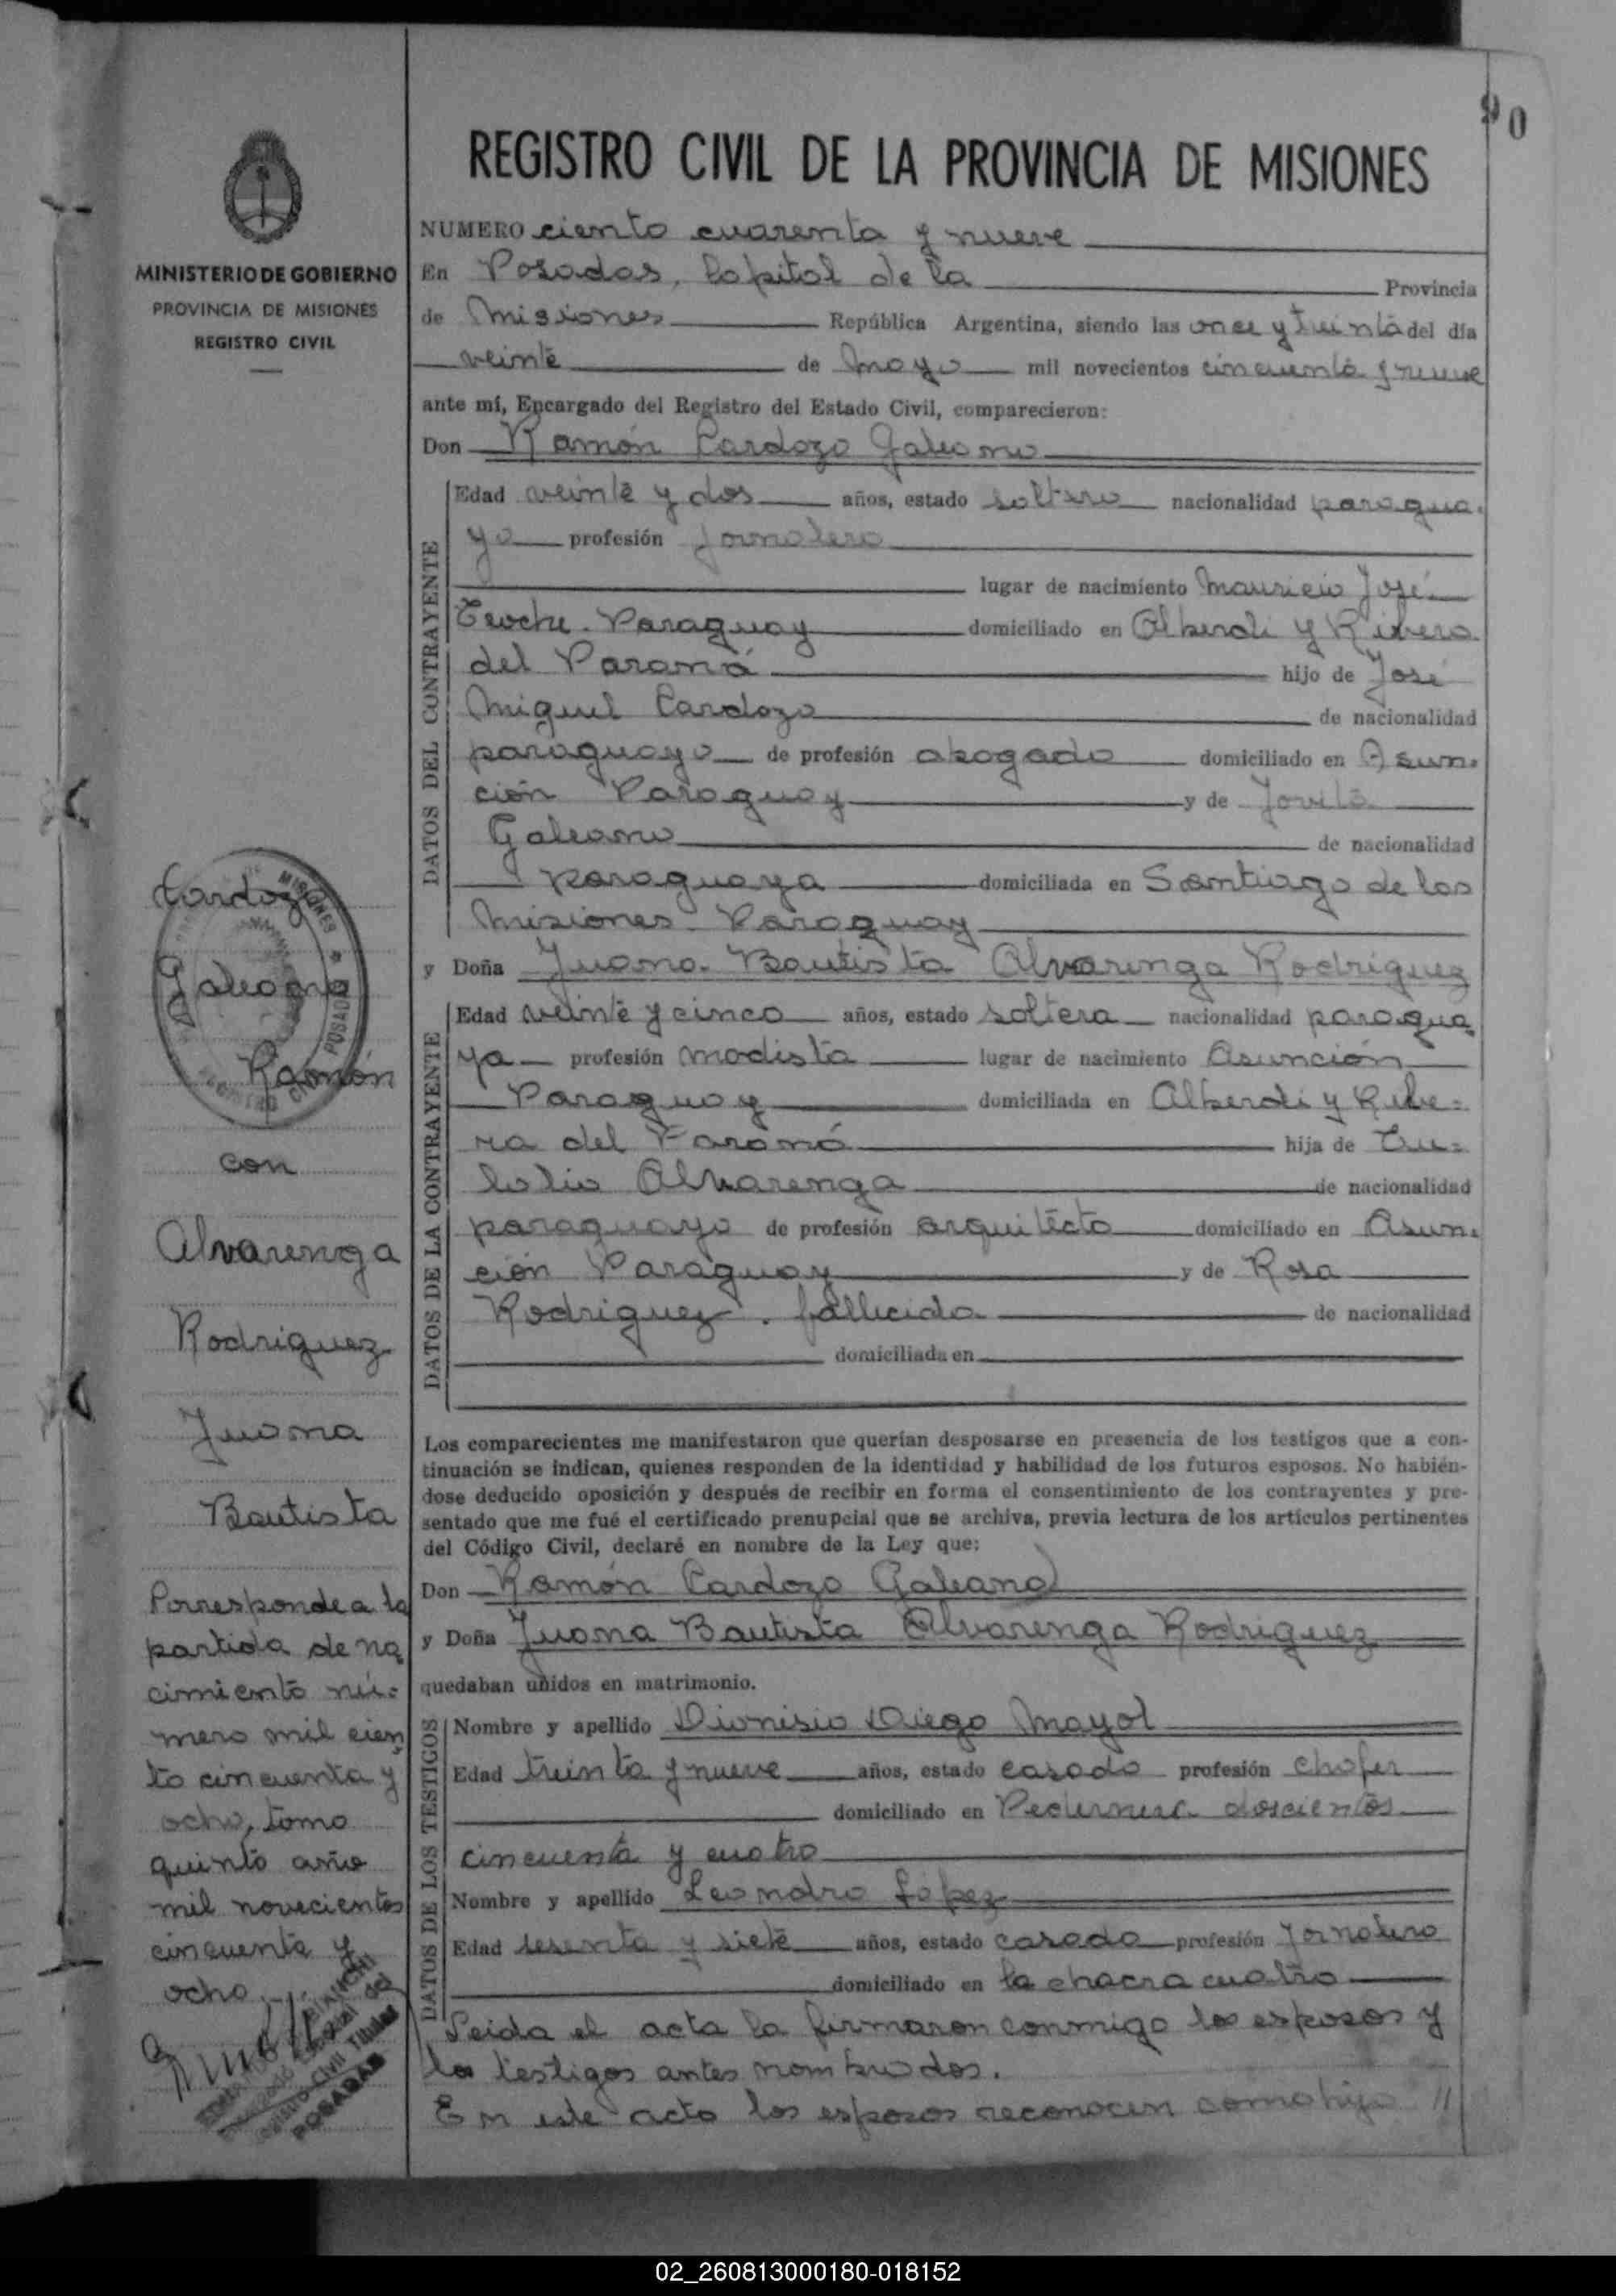 90
REGISTRO CIVIL DE LA PROVINCIA DE MISIONES
MINISTERIO DE GOBIERNO
PROVINCIA DE MISIONES
REGISTRO CIVIL
NUMERO ciento cuarenta y nueve
En Posadas, Capital de la Provincia
de Misiones República Argentina, siendo las once y treinta del día
veinte de Mayo mil novecientos cincuenta y nueve
ante mí, Encargado del Registro del Estado Civil, comparecieron:
Don Ramón Cardozo Galeano
DATOS DEL CONTRAYENTE
Edad veinte y dos años, estado soltero nacionalidad paragua-
yo profesión Jornalero
lugar de nacimiento Mauricio José
Troche - Paraguay domiciliado en Alberdi y Ribera
del Paraná hijo de José
Miguel Cardozo de nacionalidad
paraguayo de profesión abogado domiciliado en Asun-
ción Paraguay y de Jovita
Galeano de nacionalidad
paraguaya domiciliada en Santiago de las
Misiones - Paraguay
y Doña Juana Bautista Alvarenga Rodriguez
DATOS DE LA CONTRAYENTE
Edad veinte y cinco años, estado soltera nacionalidad paragua-
ya profesión modista lugar de nacimiento Asunción
Paraguay domiciliada en Alberdi y Ribe-
ra del Paraná hija de Eu-
lalio Alvarenga de nacionalidad
paraguayo de profesión arquitecto domiciliado en Asun-
ción Paraguay y de Rosa
Rodriguez . fallecida de nacionalidad
domiciliada en
Los comparecientes me manifestaron que querían desposarse en presencia de los testigos que a con-
tinuación se indican, quienes responden de la identidad y habilidad de los futuros esposos. No habién-
dose deducido oposición y después de recibir en forma el consentimiento de los contrayentes y pre-
sentado que me fué el certificado prenupcial que se archiva, previa lectura de los artículos pertinentes
del Código Civil, declaré en nombre de la Ley que:
Don Ramón Cardozo Galeano
y Doña Juana Bautista Alvarenga Rodriguez
quedaban unidos en matrimonio.
DATOS DE LOS TESTIGOS
Nombre y apellido Dionisio Diego Mayol
Edad treinta y nueve años, estado casado profesión chofer
domiciliado en Pedernera doscientos
cincuenta y cuatro
Nombre y apellido Leandro López
Edad sesenta y siete años, estado casado profesión Jornalero
domiciliado en la chacra cuatro
Leida el acta la firmaron conmigo los esposos y
los testigos antes nombrados.
En este acto los esposos reconocen como hijo //
Cardozo
Galeano
Ramón
con
Alvarenga
Rodriguez
Juana
Bautista
Corresponde a la
partida de na-
cimiento nú-
mero mil cien-
to cincuenta y
ocho, tomo
quinto año
mil novecientos
cincuenta y
ocho.
Registro Civil Titular
POSADAS
02_260813000180-018152